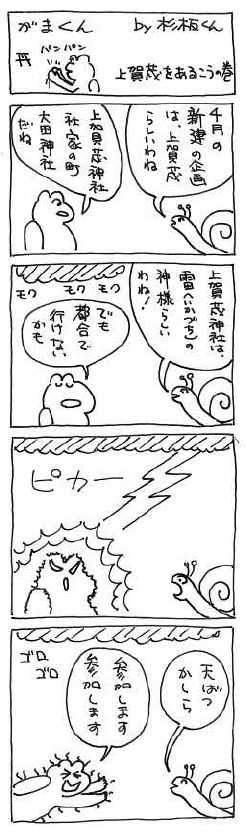 がまくん
by 杉板くん
パンパン
上賀茂をあるこうの巻
4月の
新建の企画
は、上賀茂
らしいわね
上加茂神社
社家の町
大田神社
だね
上賀茂神社は、
雷(いかづち)の
神様らしい
わね!
モク モク モク
でも
都合で
行けない
かも
ピカー
天ばつ
かしら
ゴロ
ゴロ
参加します
参加します